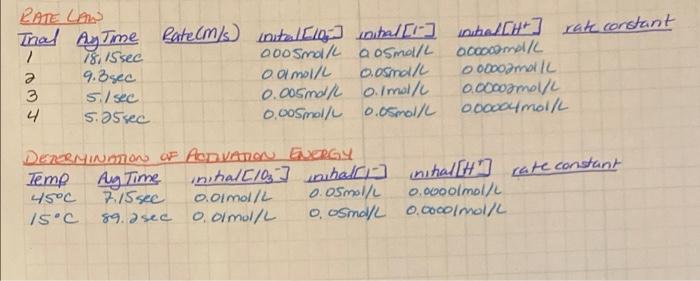 RATE LAW
Trial Avg Time Rate(m/s) initial[IO3-] initial[I-] initial[H+] rate constant
1 18.15sec 0.005mol/L 0.05mol/L 0.00002mol/L
2 9.3sec 0.01mol/L 0.05mol/L 0.00002mol/L
3 5.1sec 0.005mol/L 0.1mol/L 0.00002mol/L
4 5.25sec 0.005mol/L 0.05mol/L 0.00004mol/L
DETERMINATION OF ACTIVATION ENERGY
Temp Avg Time initial[IO3-] initial[I-] initial[H+] rate constant
45°C 7.15sec 0.01mol/L 0.05mol/L 0.00001mol/L
15°C 89.2sec 0.01mol/L 0.05mol/L 0.00001mol/L